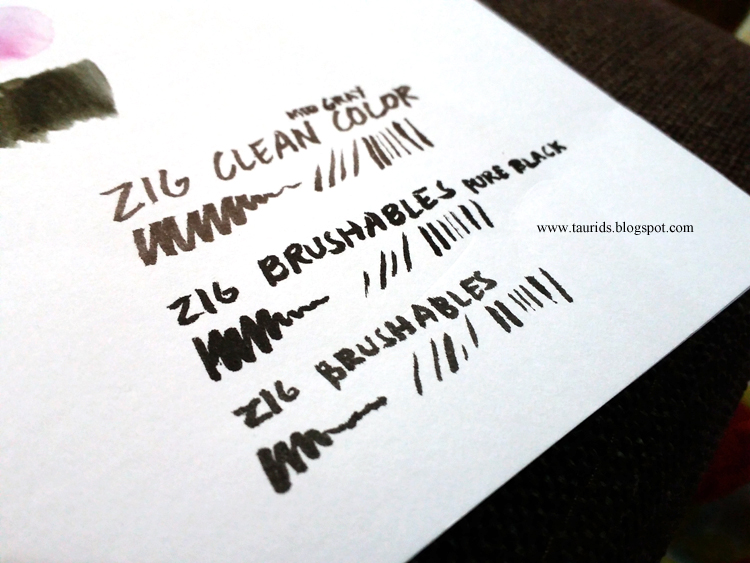 MID GRAY
ZIG CLEAN COLOR
ZIG BRUSHABLES PURE BLACK
www.taurids.blogspot.com
ZIG BRUSHABLES